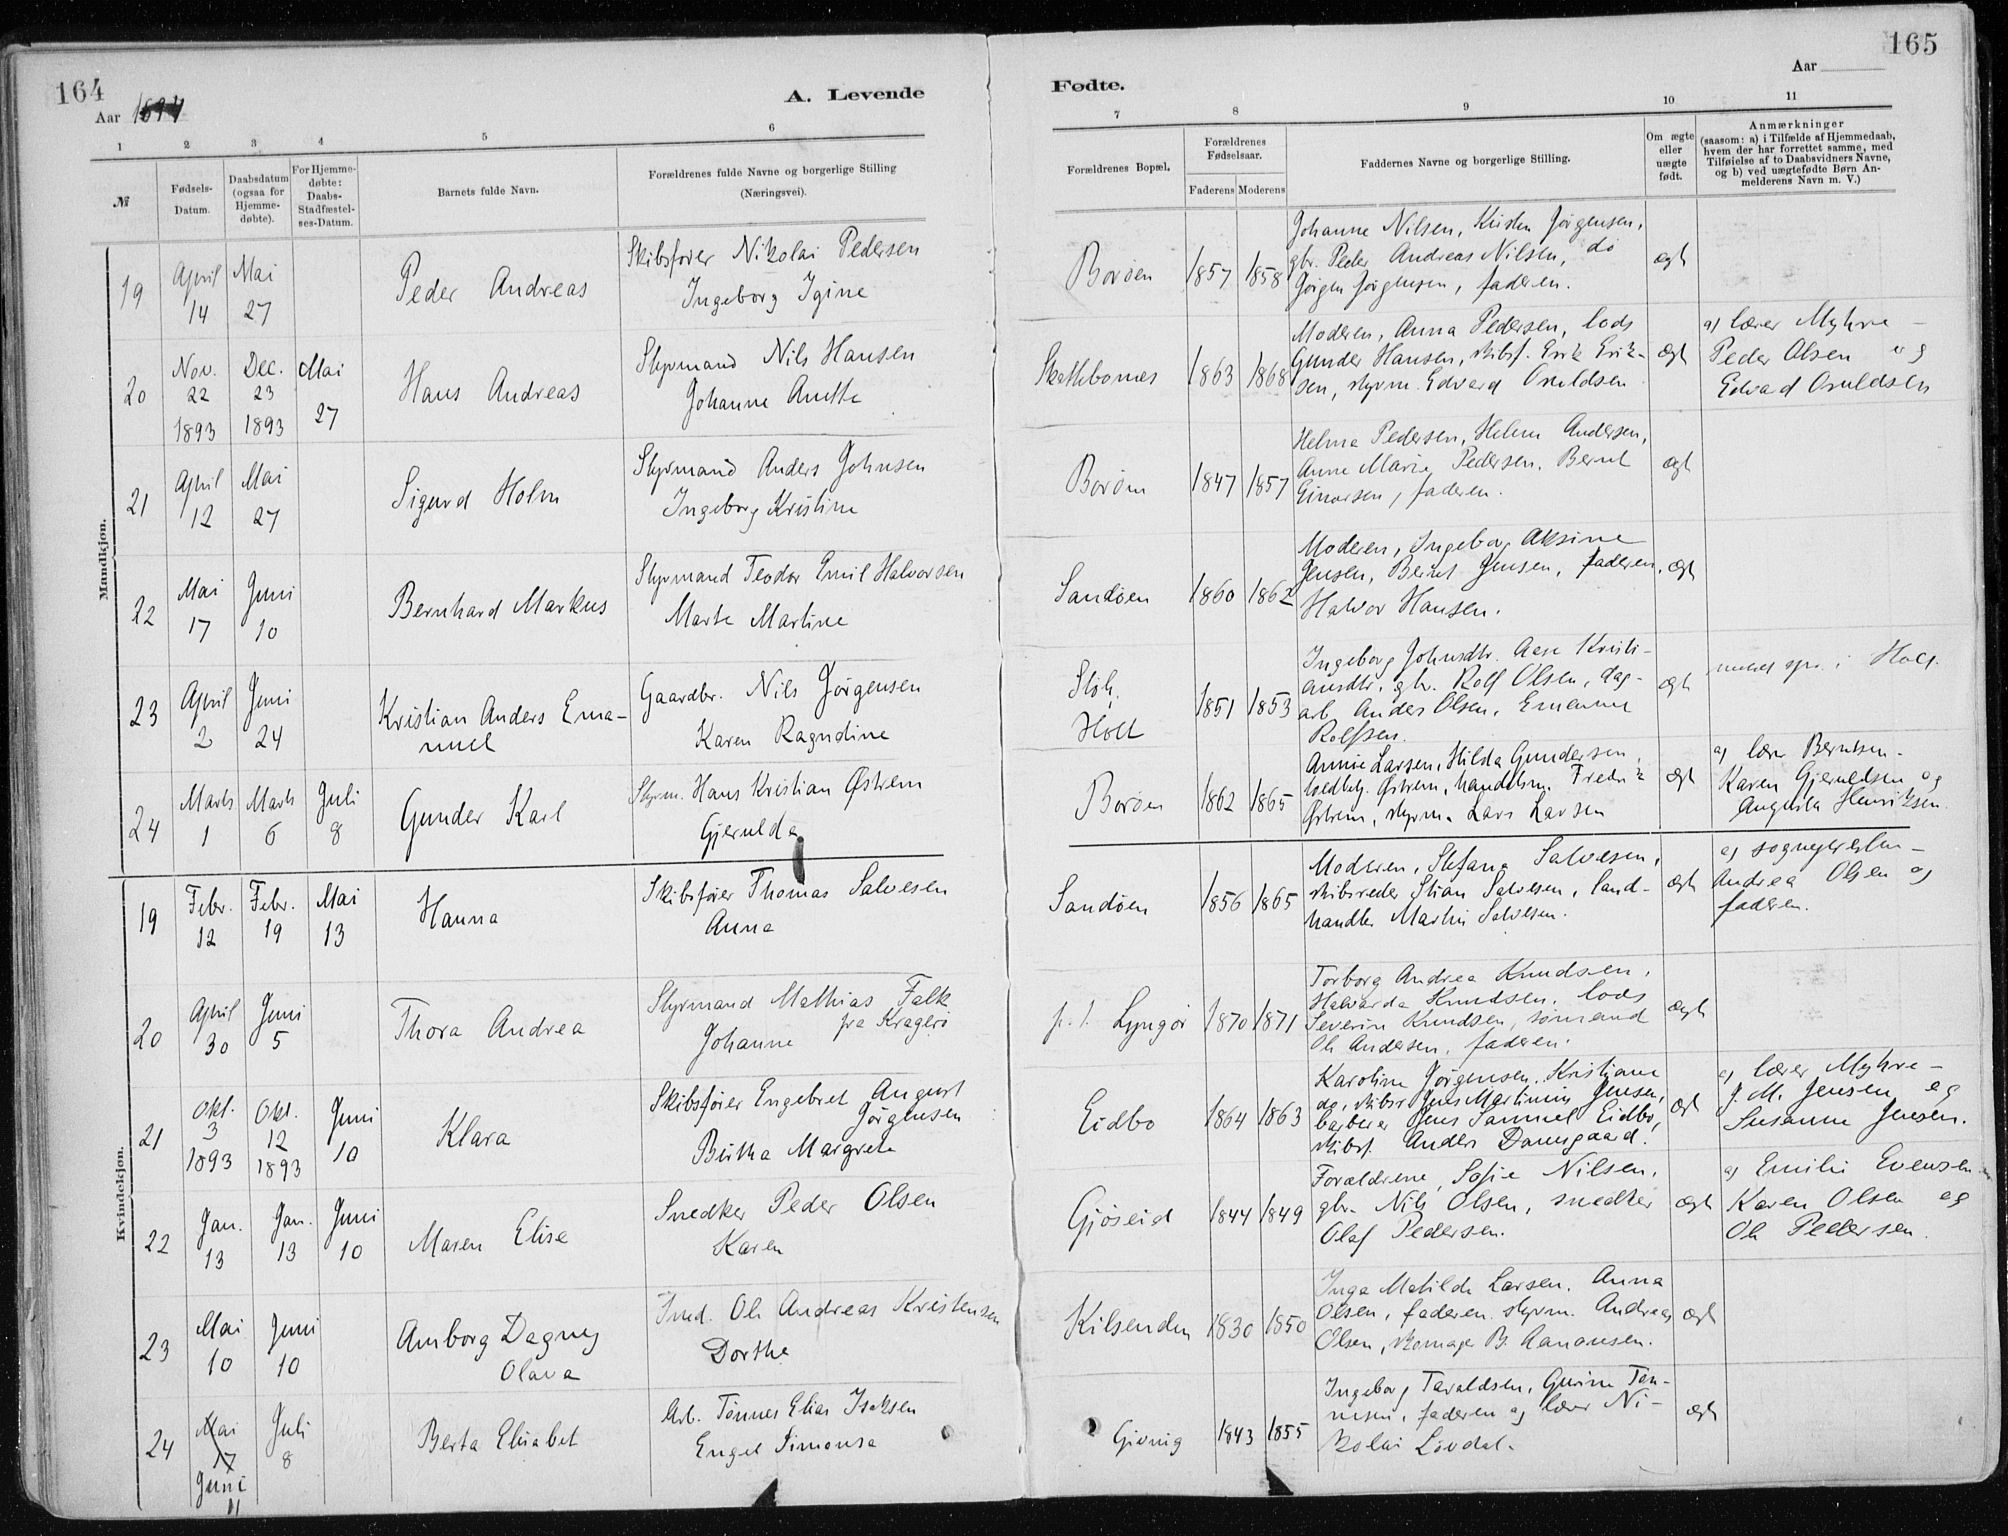 164
Aar 1894
A. Levende
1 2 3 4 5 6
№
Fødsels-
Datum.
Daabsdatum
(ogsaa for
Hjemme-
døbte).
For Hjemme-
døbte:
Daabs-
Stadfæstel-
ses-Datum.
Barnets fulde Navn.
Forældrenes fulde Navne og borgerlige Stilling
(Næringsvei).
Mandkjøn.
19
April
14
Mai
27
Peder Andreas
Skibsfører Nikolai Pedersen
Ingeborg Igine
20
Nov.
22
1893
Dec.
23
1893
Mai
27
Hans Andreas
Styrmand Nils Hansen
Johanne Anette
21
April
12
Mai
27
Sigurd Holm
Styrmand Anders Johnsen
Ingeborg Kristine
22
Mai
17
Juni
10
Bernhard Markus
Styrmand Teodor Emil Halvorsen
Marte Martine
23
April
2
Juni
24
Kristian Anders Ema-
nuel
Gaardbr. Nils Jörgensen
Karen Ragndine
24
Marts
1
Marts
6
Juli
8
Gunder Karl
Styrm. Hans Kristian Østrem
Gjerulda
Kvindekjøn.
19
Febr.
12
Febr.
19
Mai
13
Hanna
Skibsfører Thomas Salvesen
Anna
20
April
30
Juni
5
Thora Andrea
Styrmand Mathias Falk
fra Kragerö
Johanne
21
Okt.
3
1893
Okt.
12
1893
Juni
10
Klara
Skibsfører Engebret August
Jörgensen
Birtha Margrete
22
Jan.
13
Jan.
13
Juni
10
Maren Elise
Snedker Peder Olsen
Karen
23
Mai
10
Juni
10
Amborg Dagny
Olava
Smed. Ole Andreas Kristensen
Dorthe
24
Mai
17
Juni
11
Juli
8
Berta Elisabet
Arb. Tønnes Elias Isaksen
Engel Simonsa
165
Aar
Fødte.
7 8 9 10 11
Forældrenes Bopæl.
Forældrenes
Fødselsaar.
Faderens Moderens
Faddernes Navne og borgerlige Stilling.
Om ægte
eller
uægte
født.
Anmærkninger
(saasom: a) i Tilfælde af Hjemmedaab,
hvem der har forrettet samme, med
Tilføielse af to Daabsvidners Navne,
og b) ved uægtefødte Børn An-
melderens Navn m. V.)
Borøen 1857 1858
Johanne Nilsen, Kirsten Jørgensen,
gbr. Peder Andreas Nilsen, do
Jörgen Jörgensen, faderen.
ægt
1863 1868
Moderen, Anna Pedersen, lods
Gunder Hansen, skibsf. Erik Erik-
sen, styrm. Edvard Osuldsen
ægt
a) lærer Myhre -
Peder Olsen og
Edvard Osuldsen
Borøen 1847 1857
Helma Pedersen, Helene Andersen,
Anne Marie Pedersen, Bernt
Einarsen, faderen.
ægt
Sandöen 1860 1862
Moderen, Ingeborg Aksine
Jensen, Bernt Jensen, faderen,
Halvor Hansen.
ægt
Holt
1851 1853
Ingeborg Johnsdtr. Aase Kristi-
ansdtr, gbr. Rolf Olsen, dag-
arb. Anders Olsen, Emanuel
Rolfsen.
ægt
i Holt.
Borøen 1862 1865
Annie Larsen, Hilda Gundersen,
Østrem, handelsm. Fredrik
Østrem, styrm. Lars Larsen
ægt
a) lærer Berntsen -
Karen Gjeruldsen og
Augusta Henriksen.
Sandöen 1856 1865
Moderen, Stefana Salvesen,
skibsreder Stian Salvesen, land-
handler Martin Salvesen.
ægt
a) sognepresten -
Andrea Olsen og
faderen.
p. t. Lyngør 1870 1871
Torborg Andrea Knudsen,
Halvarda Knudsen, lods
Severin Knudsen, sømand
Ole Andersen, faderen.
ægt
Eidbo 1864 1863
Karoline Jörgensen, Kristiane
do, skibsr. Jens Martinius Jensen,
barberer Jens Samuel Eidbo,
skibsf. Anders Damsgaard.
ægt
a) lærer Myhre -
J. M. Jensen og
Susanne Jensen.
Gjöseid 1844 1849
Forældrene, Sofie Nilsen,
gbr. Nils Olsen, snedker
Olaf Pedersen.
ægt
a) Emilie Evensen
Karen Olsen og
Ole Pedersen.
Kilsenden 1830 1850
Inga Matilde Larsen, Anna
Olsen, faderen, styrm. Andreas
Olsen, skomager B. Aanonsen.
ægt
Givnig 1843 1855
Ingeborg Taraldsen, Gurine Tøn-
nesen, faderen og lærer Ni-
kolai Lövdal.
ægt